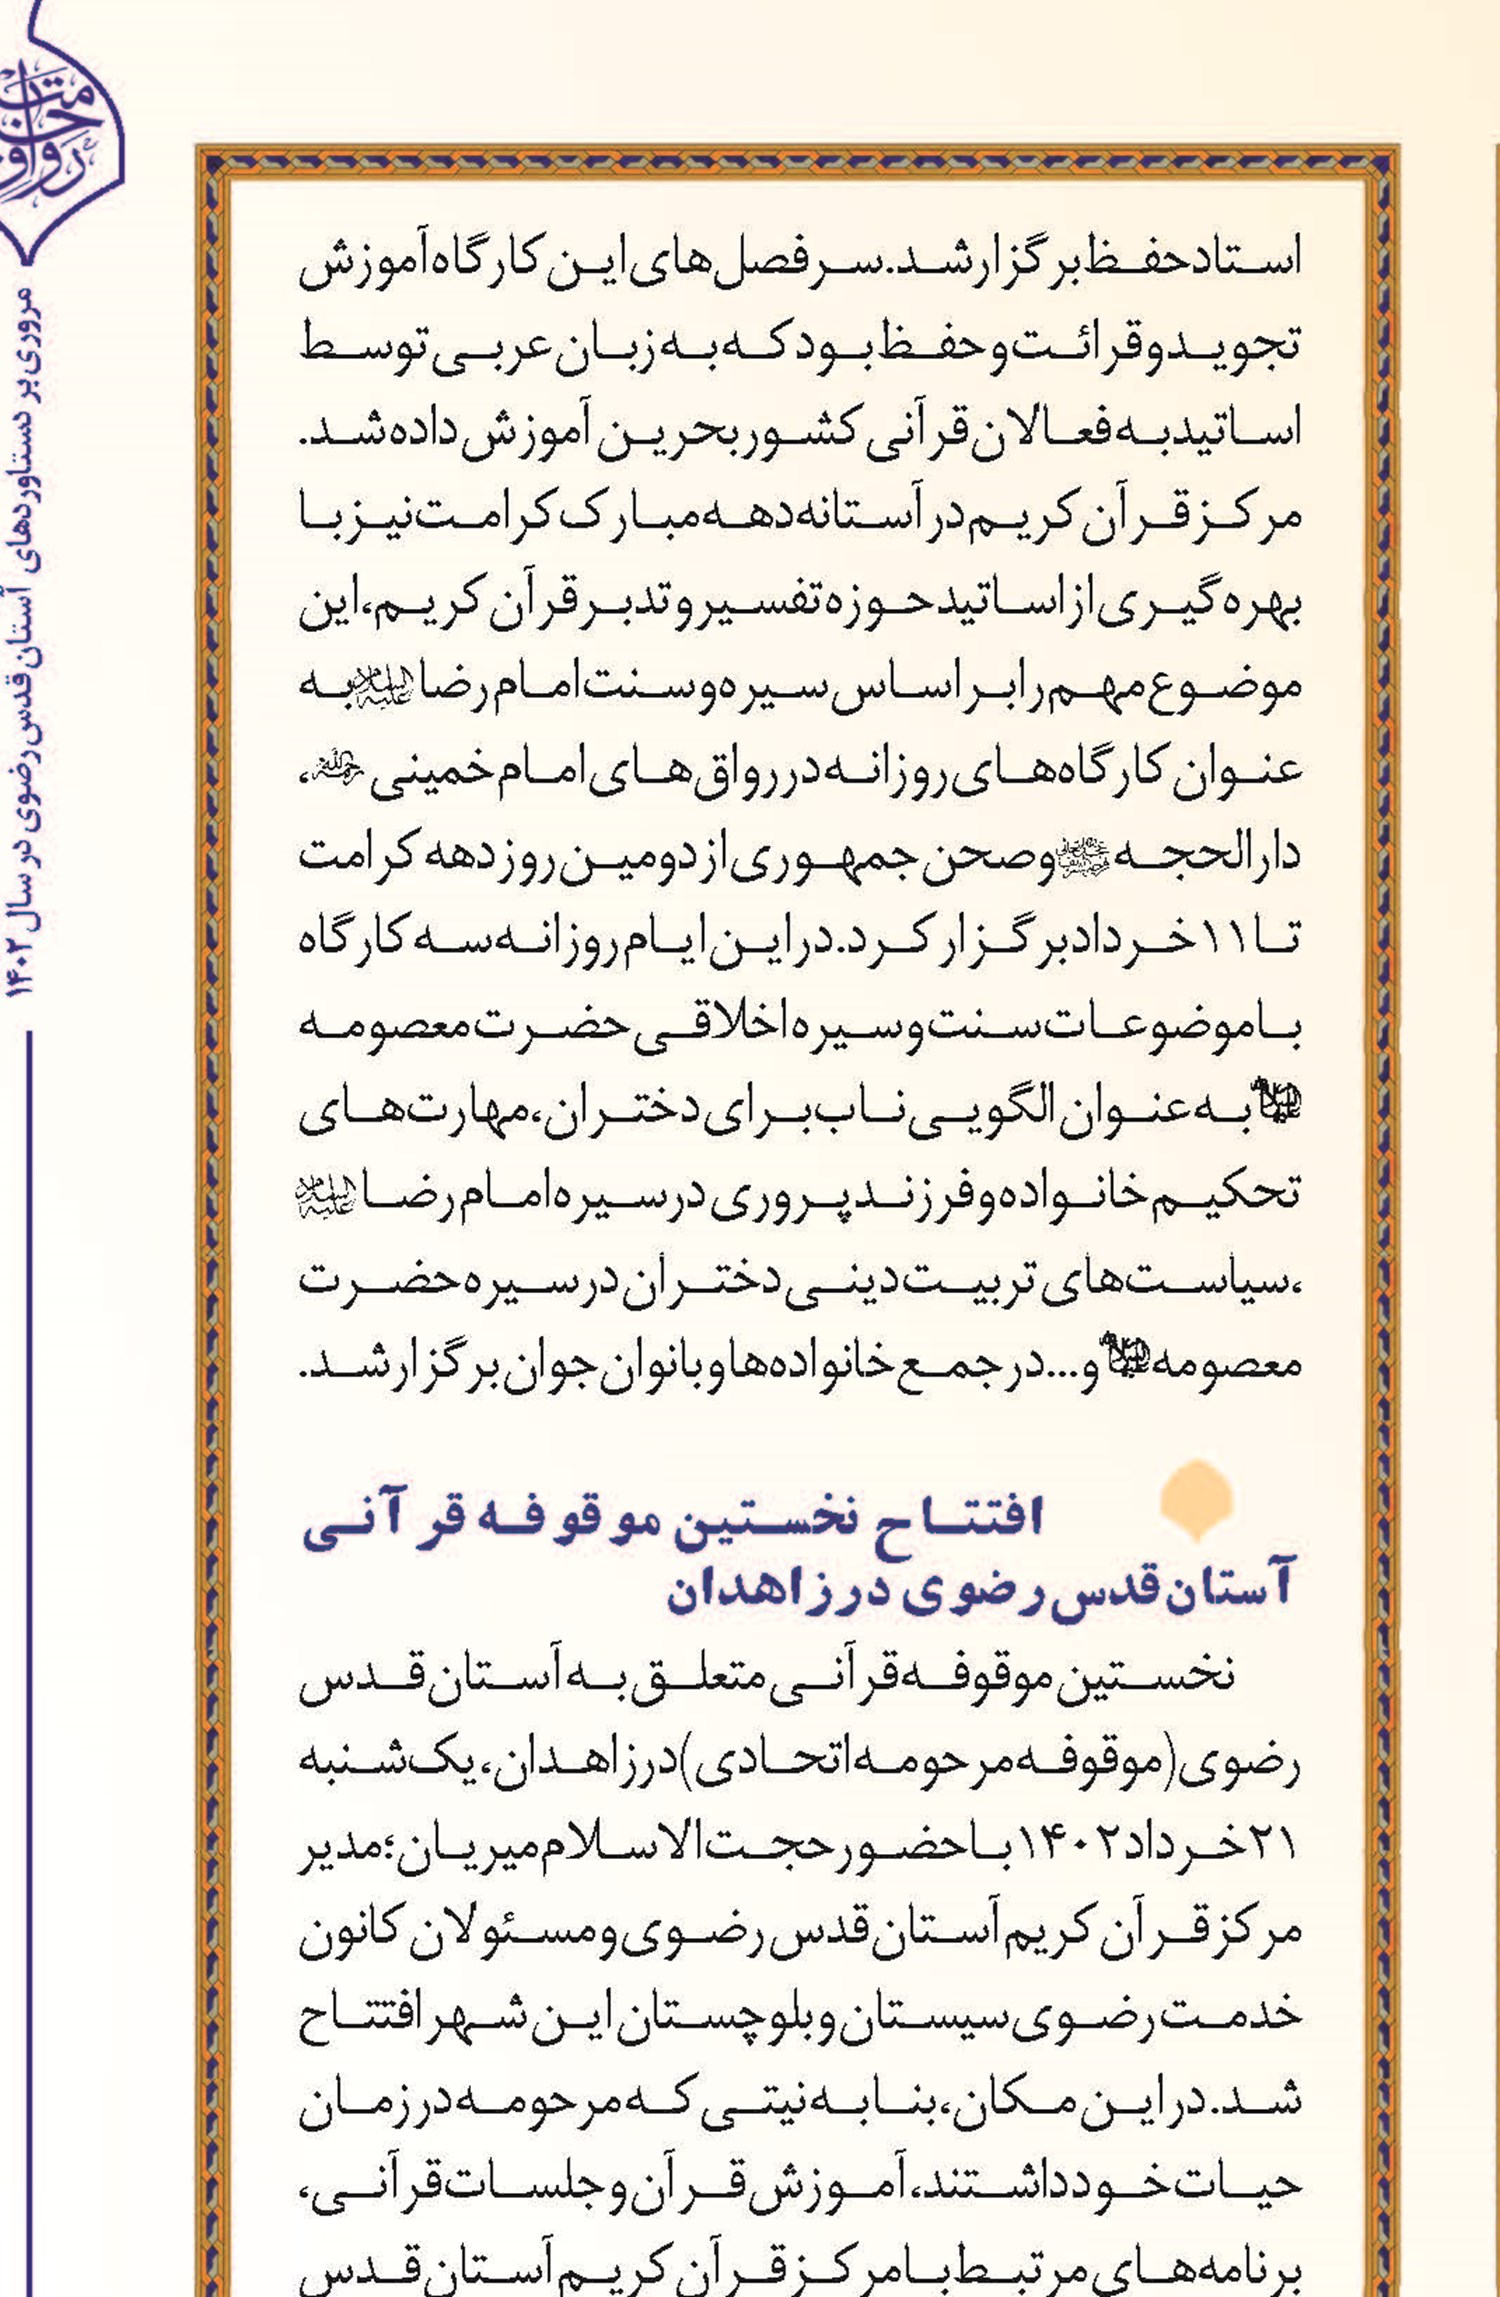 استاد حفظ برگزار شد. سرفصل‌های این کارگاه آموزش
تجوید و قرائت و حفظ بود که به زبان عربی توسط
اساتید به فعالان قرآنی کشور بحرین آموزش داده شد.
مرکز قرآن کریم در آستانه دهه مبارک کرامت نیز با
بهره‌گیری از اساتید حوزه تفسیر و تدبر قرآن کریم، این
موضوع مهم را بر اساس سیره و سنت امام رضا علیه السلام به
عنوان کارگاه‌های روزانه در رواق‌های امام خمینی ،
دارالحجه و صحن جمهوری از دومین روز دهه کرامت
تا ۱۱ خرداد برگزار کرد. در این ایام روزانه سه کارگاه
با موضوعات سنت و سیره اخلاقی حضرت معصومه
به عنوان الگویی ناب برای دختران، مهارت‌های
تحکیم خانواده و فرزندپروری در سیره امام رضا علیه السلام
، سیاست‌های تربیت دینی دختران در سیره حضرت
معصومه و... در جمع خانواده‌ها و بانوان جوان برگزار شد.
افتتاح نخستین موقوفه قرآنی
آستان قدس رضوی در زاهدان
نخستین موقوفه قرآنی متعلق به آستان قدس
رضوی (موقوفه مرحومه اتحادی) در زاهدان، یک‌شنبه
۲۱ خرداد ۱۴۰۲ با حضور حجت‌الاسلام میریان؛ مدیر
مرکز قرآن کریم آستان قدس رضوی و مسئولان کانون
خدمت رضوی سیستان و بلوچستان این شهر افتتاح
شد. در این مکان، بنا به نیتی که مرحومه در زمان
حیات خود داشتند، آموزش قرآن و جلسات قرآنی،
برنامه‌های مرتبط با مرکز قرآن کریم آستان قدس
رواق خدمت
مروری بر دستاوردهای آستان قدس رضوی در سال ۱۴۰۲